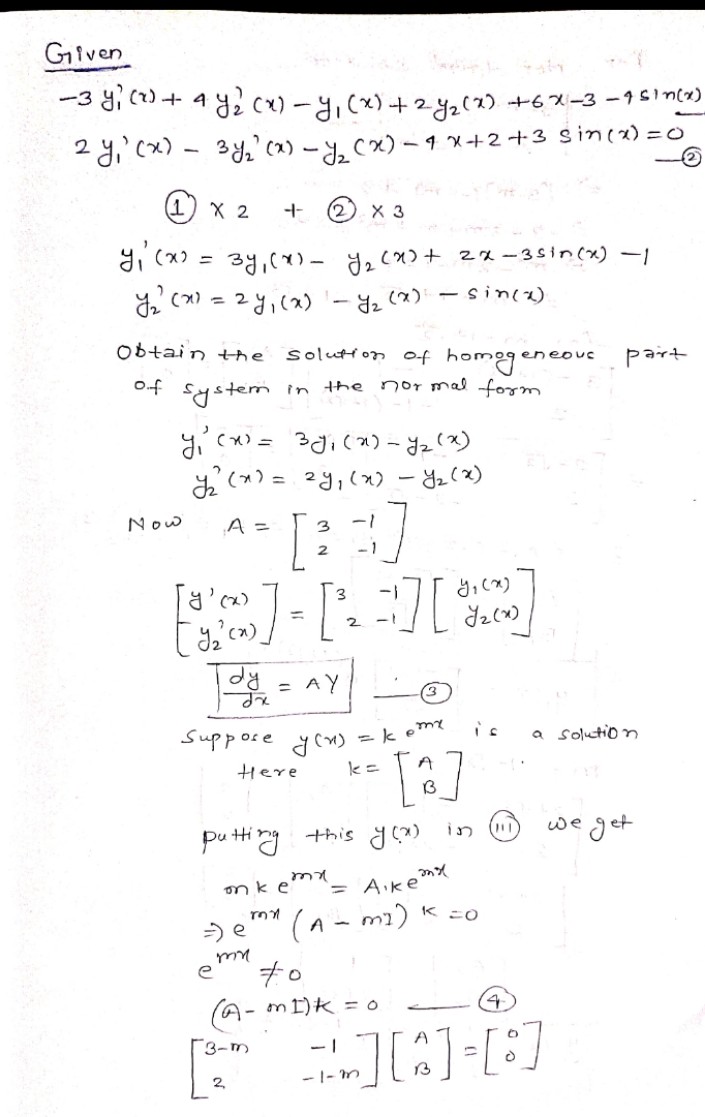 Given
-3 y₁'(x) + 4 y₂'(x) - y₁(x) + 2y₂(x) + 6x - 3 - 4 sin(x)
2 y₁'(x) - 3y₂'(x) - y₂(x) - 4x + 2 + 3 sin(x) = 0 —②
① × 2 + ② × 3
y₁'(x) = 3y₁(x) - y₂(x) + 2x - 3sin(x) - 1
y₂'(x) = 2y₁(x) - y₂(x) - sin(x)
Obtain the solution of homogeneous part
of system in the normal form
y₁'(x) = 3y₁(x) - y₂(x)
y₂'(x) = 2y₁(x) - y₂(x)
Now A = [3 -1; 2 -1]
[y'(x); y₂'(x)] = [3 -1; 2 -1] [y₁(x); y₂(x)]
dy/dx = AY —③
Suppose y(x) = k e^{mx} is a solution
Here k = [A; B]
putting this y(x) in (III) we get
mk e^{mx} = A.k e^{mx}
⇒ e^{mx} (A - mI) k = 0
e^{mx} ≠ 0
(A - mI)k = 0 —④
[3-m -1; 2 -1-m] [A; B] = [0; 0]